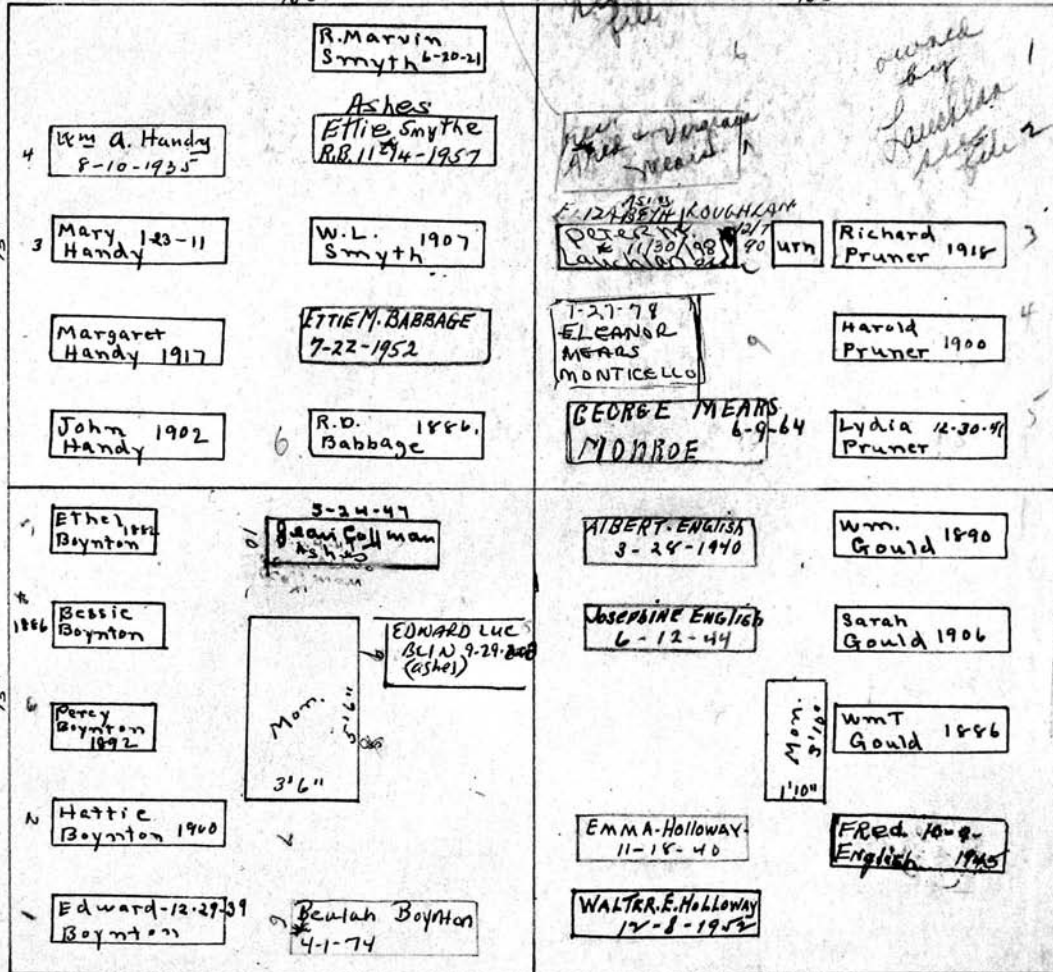 R. Marvin
Smyth 6-20-21
Ashes
Ettie Smythe
R.B. 11-1957
Wm A. Handy
8-10-1935
4
3
Mary 1-23-11
Handy
W.L. 1907
Smyth
Margaret
Handy 1917
ETTIE M. BABBAGE
7-22-1952
John 1902
Handy
6
R.D. 1886.
Babbage
file
6
owned
by
Lauchlan
see
file
1
2
Virginia
Mears
ELIZABETH
PETER
11/30/98
Lauchlan
12/7
90
urn
Richard
Pruner 1918
3
7-27-78
ELEANOR
MEARS
MONTICELLO
9
Harold
Pruner 1900
4
GEORGE MEARS
6-9-64
MONROE
Lydia 12-30-41
Pruner
5
5
Ethel 1882
Boynton
5-24-47
Jean Coffman
Ashes
10
4
1886
Bessie
Boynton
EDWARD LUC
BLIN 9-29-
(ashes)
9
Mon.
5'6"
3'6"
8
3
Percy
Boynton
1892
2
Hattie
Boynton 1900
7
1
Edward-12-29-39
Boynton
6
Beulah Boynton
4-1-74
ALBERT. ENGLISH
3-28-1940
Wm.
Gould 1890
JOSEPHINE ENGLISH
6-12-44
Sarah
Gould 1906
Mon.
3'10"
1'10"
Wm T
Gould 1886
EMMA-HOLLOWAY-
11-18-40
FRed. 10-9-
English 1945
WALTER.E.HOLLOWAY
12-8-1952